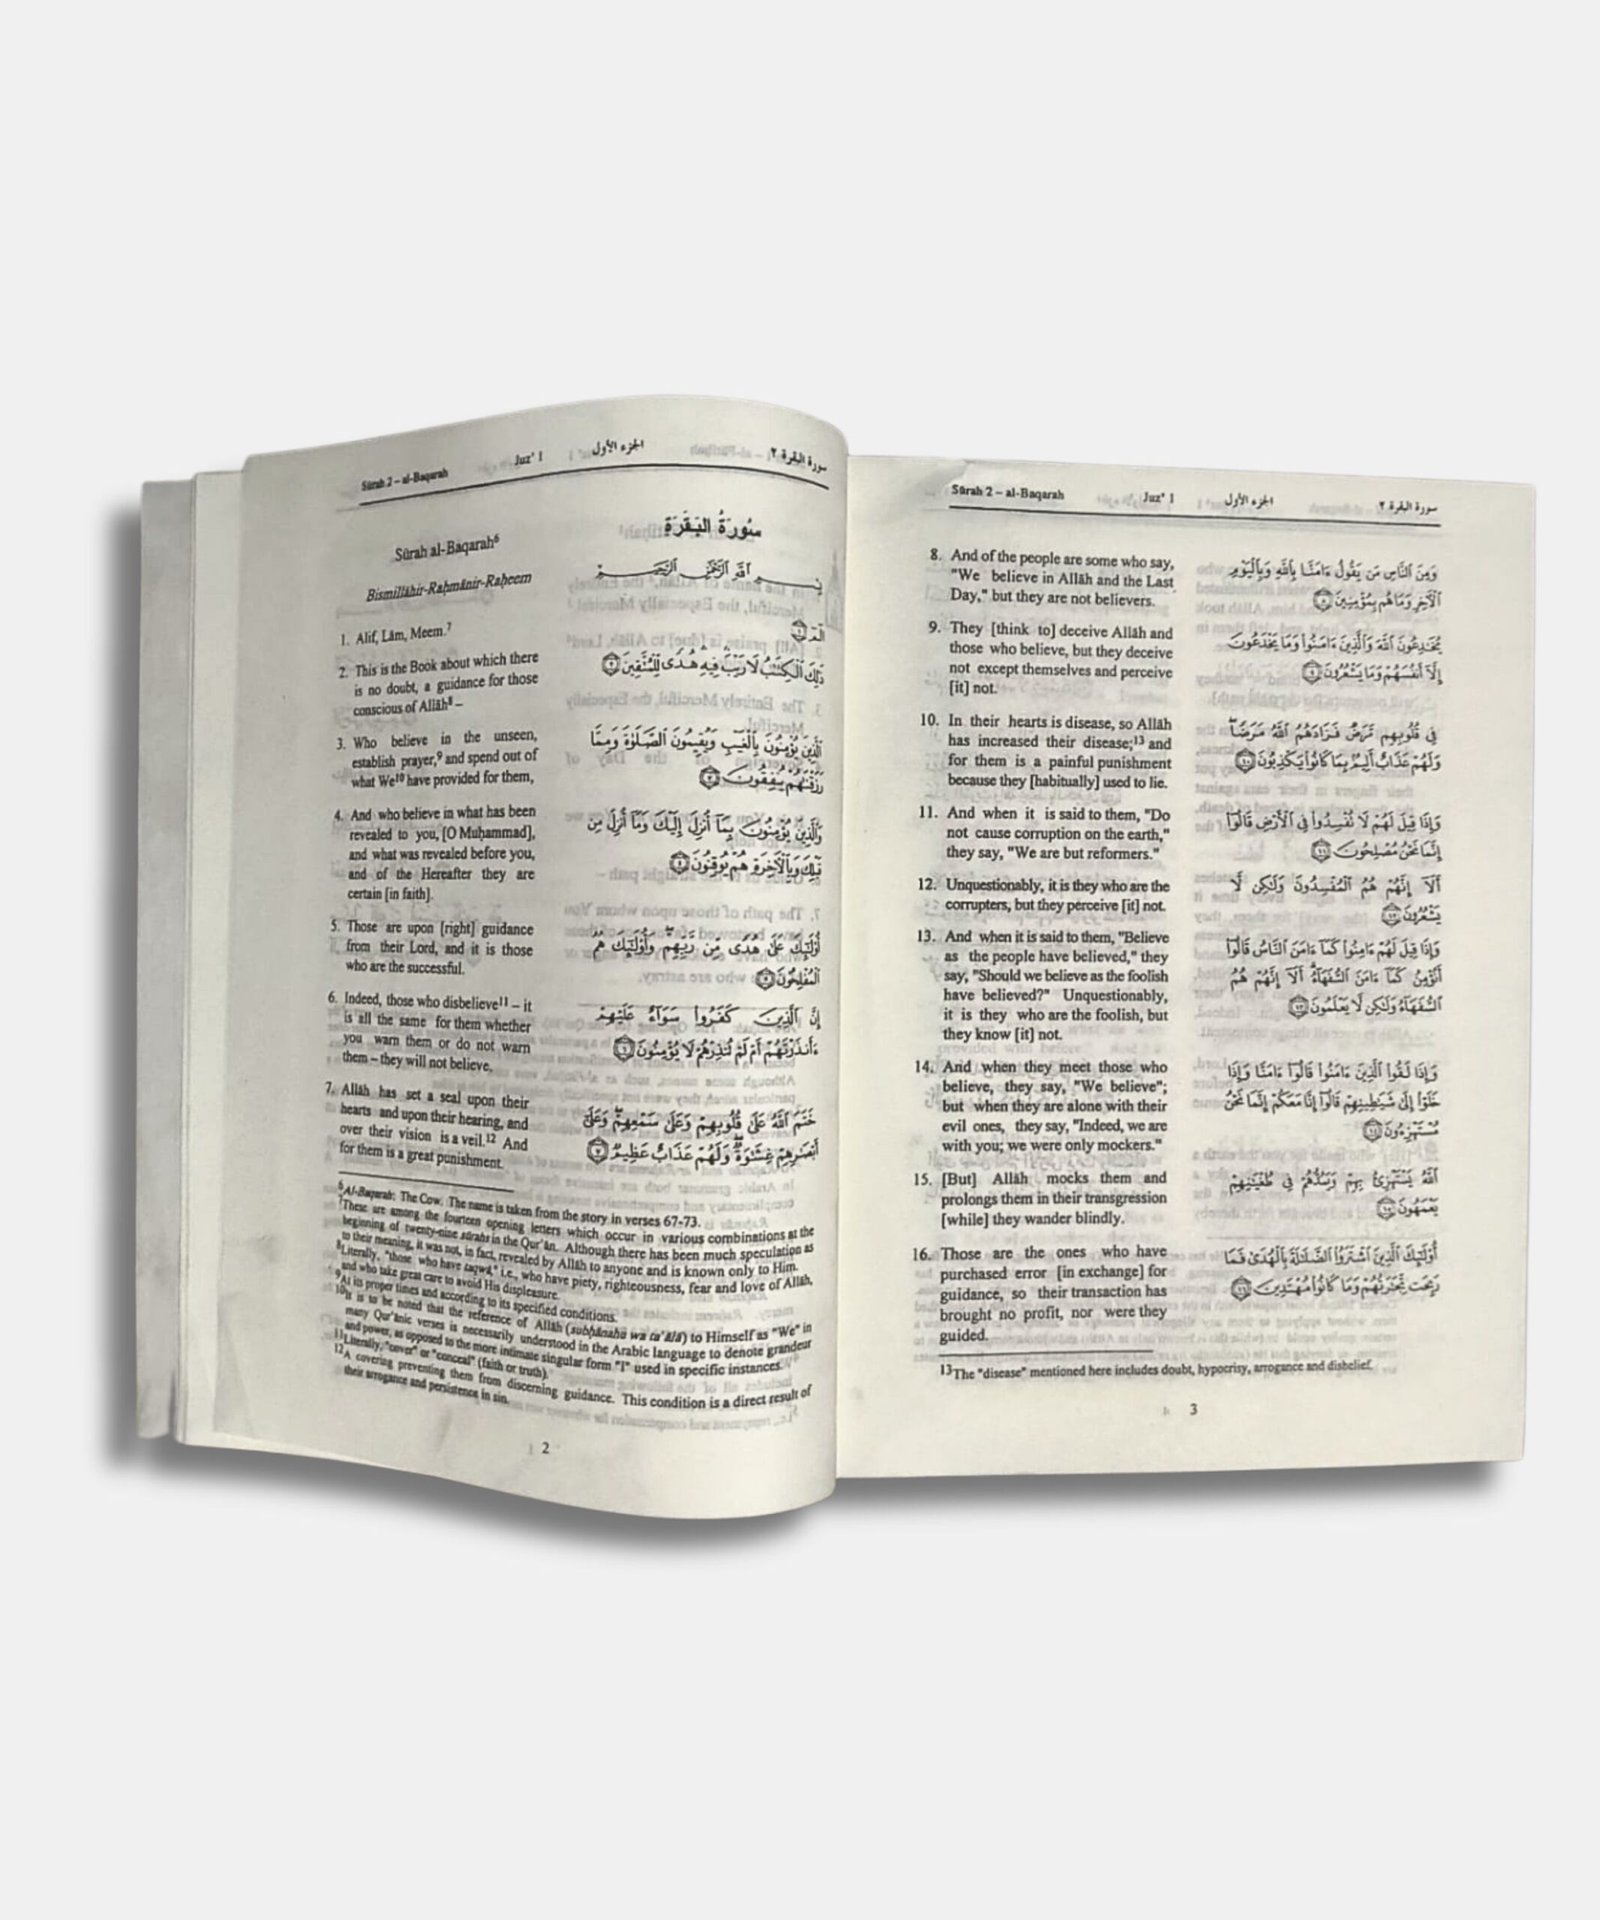 Sūrah 2 – al-Baqarah Juz' 1 الجزء الأول سورة البقرة ٢
Sūrah al-Baqarah6
Bismillāhir-Raḥmānir-Raḥeem
1. Alif, Lām, Meem.7
2. This is the Book about which there
is no doubt, a guidance for those
conscious of Allāh8 –
3. Who believe in the unseen,
establish prayer,9 and spend out of
what We10 have provided for them,
4. And who believe in what has been
revealed to you, [O Muḥammad],
and what was revealed before you,
and of the Hereafter they are
certain [in faith].
5. Those are upon [right] guidance
from their Lord, and it is those
who are the successful.
6. Indeed, those who disbelieve11 – it
is all the same for them whether
you warn them or do not warn
them – they will not believe.
7. Allāh has set a seal upon their
hearts and upon their hearing, and
over their vision is a veil.12 And
for them is a great punishment.
سُورَةُ البَقَرَةِ
بِسْمِ ٱللَّهِ ٱلرَّحْمَٰنِ ٱلرَّحِيمِ
الٓمٓ ١
ذَٰلِكَ ٱلْكِتَٰبُ لَا رَيْبَ فِيهِ هُدًى لِّلْمُتَّقِينَ ٢
ٱلَّذِينَ يُؤْمِنُونَ بِٱلْغَيْبِ وَيُقِيمُونَ ٱلصَّلَوٰةَ وَمِمَّا
رَزَقْنَٰهُمْ يُنفِقُونَ ٣
وَٱلَّذِينَ يُؤْمِنُونَ بِمَآ أُنزِلَ إِلَيْكَ وَمَآ أُنزِلَ مِن
قَبْلِكَ وَبِٱلْءَاخِرَةِ هُمْ يُوقِنُونَ ٤
أُو۟لَٰٓئِكَ عَلَىٰ هُدًى مِّن رَّبِّهِمْ وَأُو۟لَٰٓئِكَ هُمُ
ٱلْمُفْلِحُونَ ٥
إِنَّ ٱلَّذِينَ كَفَرُوا۟ سَوَآءٌ عَلَيْهِمْ
ءَأَنذَرْتَهُمْ أَمْ لَمْ تُنذِرْهُمْ لَا يُؤْمِنُونَ ٦
خَتَمَ ٱللَّهُ عَلَىٰ قُلُوبِهِمْ وَعَلَىٰ سَمْعِهِمْ وَعَلَىٰٓ
أَبْصَٰرِهِمْ غِشَٰوَةٌ وَلَهُمْ عَذَابٌ عَظِيمٌ ٧
6Al-Baqarah: The Cow. The name is taken from the story in verses 67-73.
7These are among the fourteen opening letters which occur in various combinations at the
beginning of twenty-nine sūrahs in the Qur'ān. Although there has been much speculation as
to their meaning, it was not, in fact, revealed by Allāh to anyone and is known only to Him.
8Literally, "those who have taqwā," i.e., who have piety, righteousness, fear and love of Allāh,
and who take great care to avoid His displeasure.
9At its proper times and according to its specified conditions.
10It is to be noted that the reference of Allāh (subḥānahu wa ta'ālā) to Himself as "We" in
many Qur'ānic verses is necessarily understood in the Arabic language to denote grandeur
and power, as opposed to the more intimate singular form "I" used in specific instances.
11Literally, "cover" or "conceal" (faith or truth).
12A covering preventing them from discerning guidance. This condition is a direct result of
their arrogance and persistence in sin.
2
Sūrah 2 – al-Baqarah Juz' 1 الجزء الأول سورة البقرة ٢
8. And of the people are some who say,
"We believe in Allāh and the Last
Day," but they are not believers.
9. They [think to] deceive Allāh and
those who believe, but they deceive
not except themselves and perceive
[it] not.
10. In their hearts is disease, so Allāh
has increased their disease;13 and
for them is a painful punishment
because they [habitually] used to lie.
11. And when it is said to them, "Do
not cause corruption on the earth,"
they say, "We are but reformers."
12. Unquestionably, it is they who are the
corrupters, but they perceive [it] not.
13. And when it is said to them, "Believe
as the people have believed," they
say, "Should we believe as the foolish
have believed?" Unquestionably,
it is they who are the foolish, but
they know [it] not.
14. And when they meet those who
believe, they say, "We believe";
but when they are alone with their
evil ones, they say, "Indeed, we are
with you; we were only mockers."
15. [But] Allāh mocks them and
prolongs them in their transgression
[while] they wander blindly.
16. Those are the ones who have
purchased error [in exchange] for
guidance, so their transaction has
brought no profit, nor were they
guided.
وَمِنَ ٱلنَّاسِ مَن يَقُولُ ءَامَنَّا بِٱللَّهِ وَبِٱلْيَوْمِ
ٱلْءَاخِرِ وَمَا هُم بِمُؤْمِنِينَ ٨
يُخَٰدِعُونَ ٱللَّهَ وَٱلَّذِينَ ءَامَنُوا۟ وَمَا يَخْدَعُونَ
إِلَّآ أَنفُسَهُمْ وَمَا يَشْعُرُونَ ٩
فِى قُلُوبِهِم مَّرَضٌ فَزَادَهُمُ ٱللَّهُ مَرَضًا
وَلَهُمْ عَذَابٌ أَلِيمٌ بِمَا كَانُوا۟ يَكْذِبُونَ ١٠
وَإِذَا قِيلَ لَهُمْ لَا تُفْسِدُوا۟ فِى ٱلْأَرْضِ قَالُوٓا۟
إِنَّمَا نَحْنُ مُصْلِحُونَ ١١
أَلَآ إِنَّهُمْ هُمُ ٱلْمُفْسِدُونَ وَلَٰكِن لَّا
يَشْعُرُونَ ١٢
وَإِذَا قِيلَ لَهُمْ ءَامِنُوا۟ كَمَآ ءَامَنَ ٱلنَّاسُ قَالُوٓا۟
أَنُؤْمِنُ كَمَآ ءَامَنَ ٱلسُّفَهَآءُ أَلَآ إِنَّهُمْ هُمُ
ٱلسُّفَهَآءُ وَلَٰكِن لَّا يَعْلَمُونَ ١٣
وَإِذَا لَقُوا۟ ٱلَّذِينَ ءَامَنُوا۟ قَالُوٓا۟ ءَامَنَّا وَإِذَا
خَلَوْا۟ إِلَىٰ شَيَٰطِينِهِمْ قَالُوٓا۟ إِنَّا مَعَكُمْ إِنَّمَا نَحْنُ
مُسْتَهْزِءُونَ ١٤
ٱللَّهُ يَسْتَهْزِئُ بِهِمْ وَيَمُدُّهُمْ فِى طُغْيَٰنِهِمْ
يَعْمَهُونَ ١٥
أُو۟لَٰٓئِكَ ٱلَّذِينَ ٱشْتَرَوُا۟ ٱلضَّلَٰلَةَ بِٱلْهُدَىٰ فَمَا
رَبِحَت تِّجَٰرَتُهُمْ وَمَا كَانُوا۟ مُهْتَدِينَ ١٦
13The "disease" mentioned here includes doubt, hypocrisy, arrogance and disbelief.
3